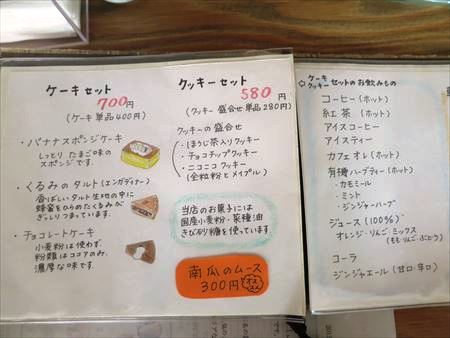 ケーキセット
700円
(ケーキ単品400円)
・バナナスポンジケーキ
しっとり たまご味の
スポンジです。
・くるみのタルト(エンガディナー)
香ばしいタルト生地の中に
蜂蜜をひめたくるみが
ぎっしりつまっています。
・チョコレートケーキ
小麦粉は使わず、
粉類はココアのみ。
濃厚な味です。
クッキーセット
580円
(クッキー盛合せ単品280円)
クッキーの盛合せ
・ほうじ茶入りクッキー
・チョコチップクッキー
・ニコニコクッキー
(全粒粉とメイプル)
当店のお菓子には
国産小麦粉・菜種油
きび砂糖を使っています。
南瓜のムース
300円
オススメ
☆ケーキ
クッキー セットのお飲みもの
コーヒー(ホット)
紅茶(ホット)
アイスコーヒー
アイスティー
カフェオレ(ホット)
有機ハーブティー(ホット)
・カモミール
・ミント
・ジンジャーハーブ
ジュース(100%)
オレンジ・りんご・ミックス
(もも・りんご・ぶどう)
コーラ
ジンジャエール(甘口・辛口)